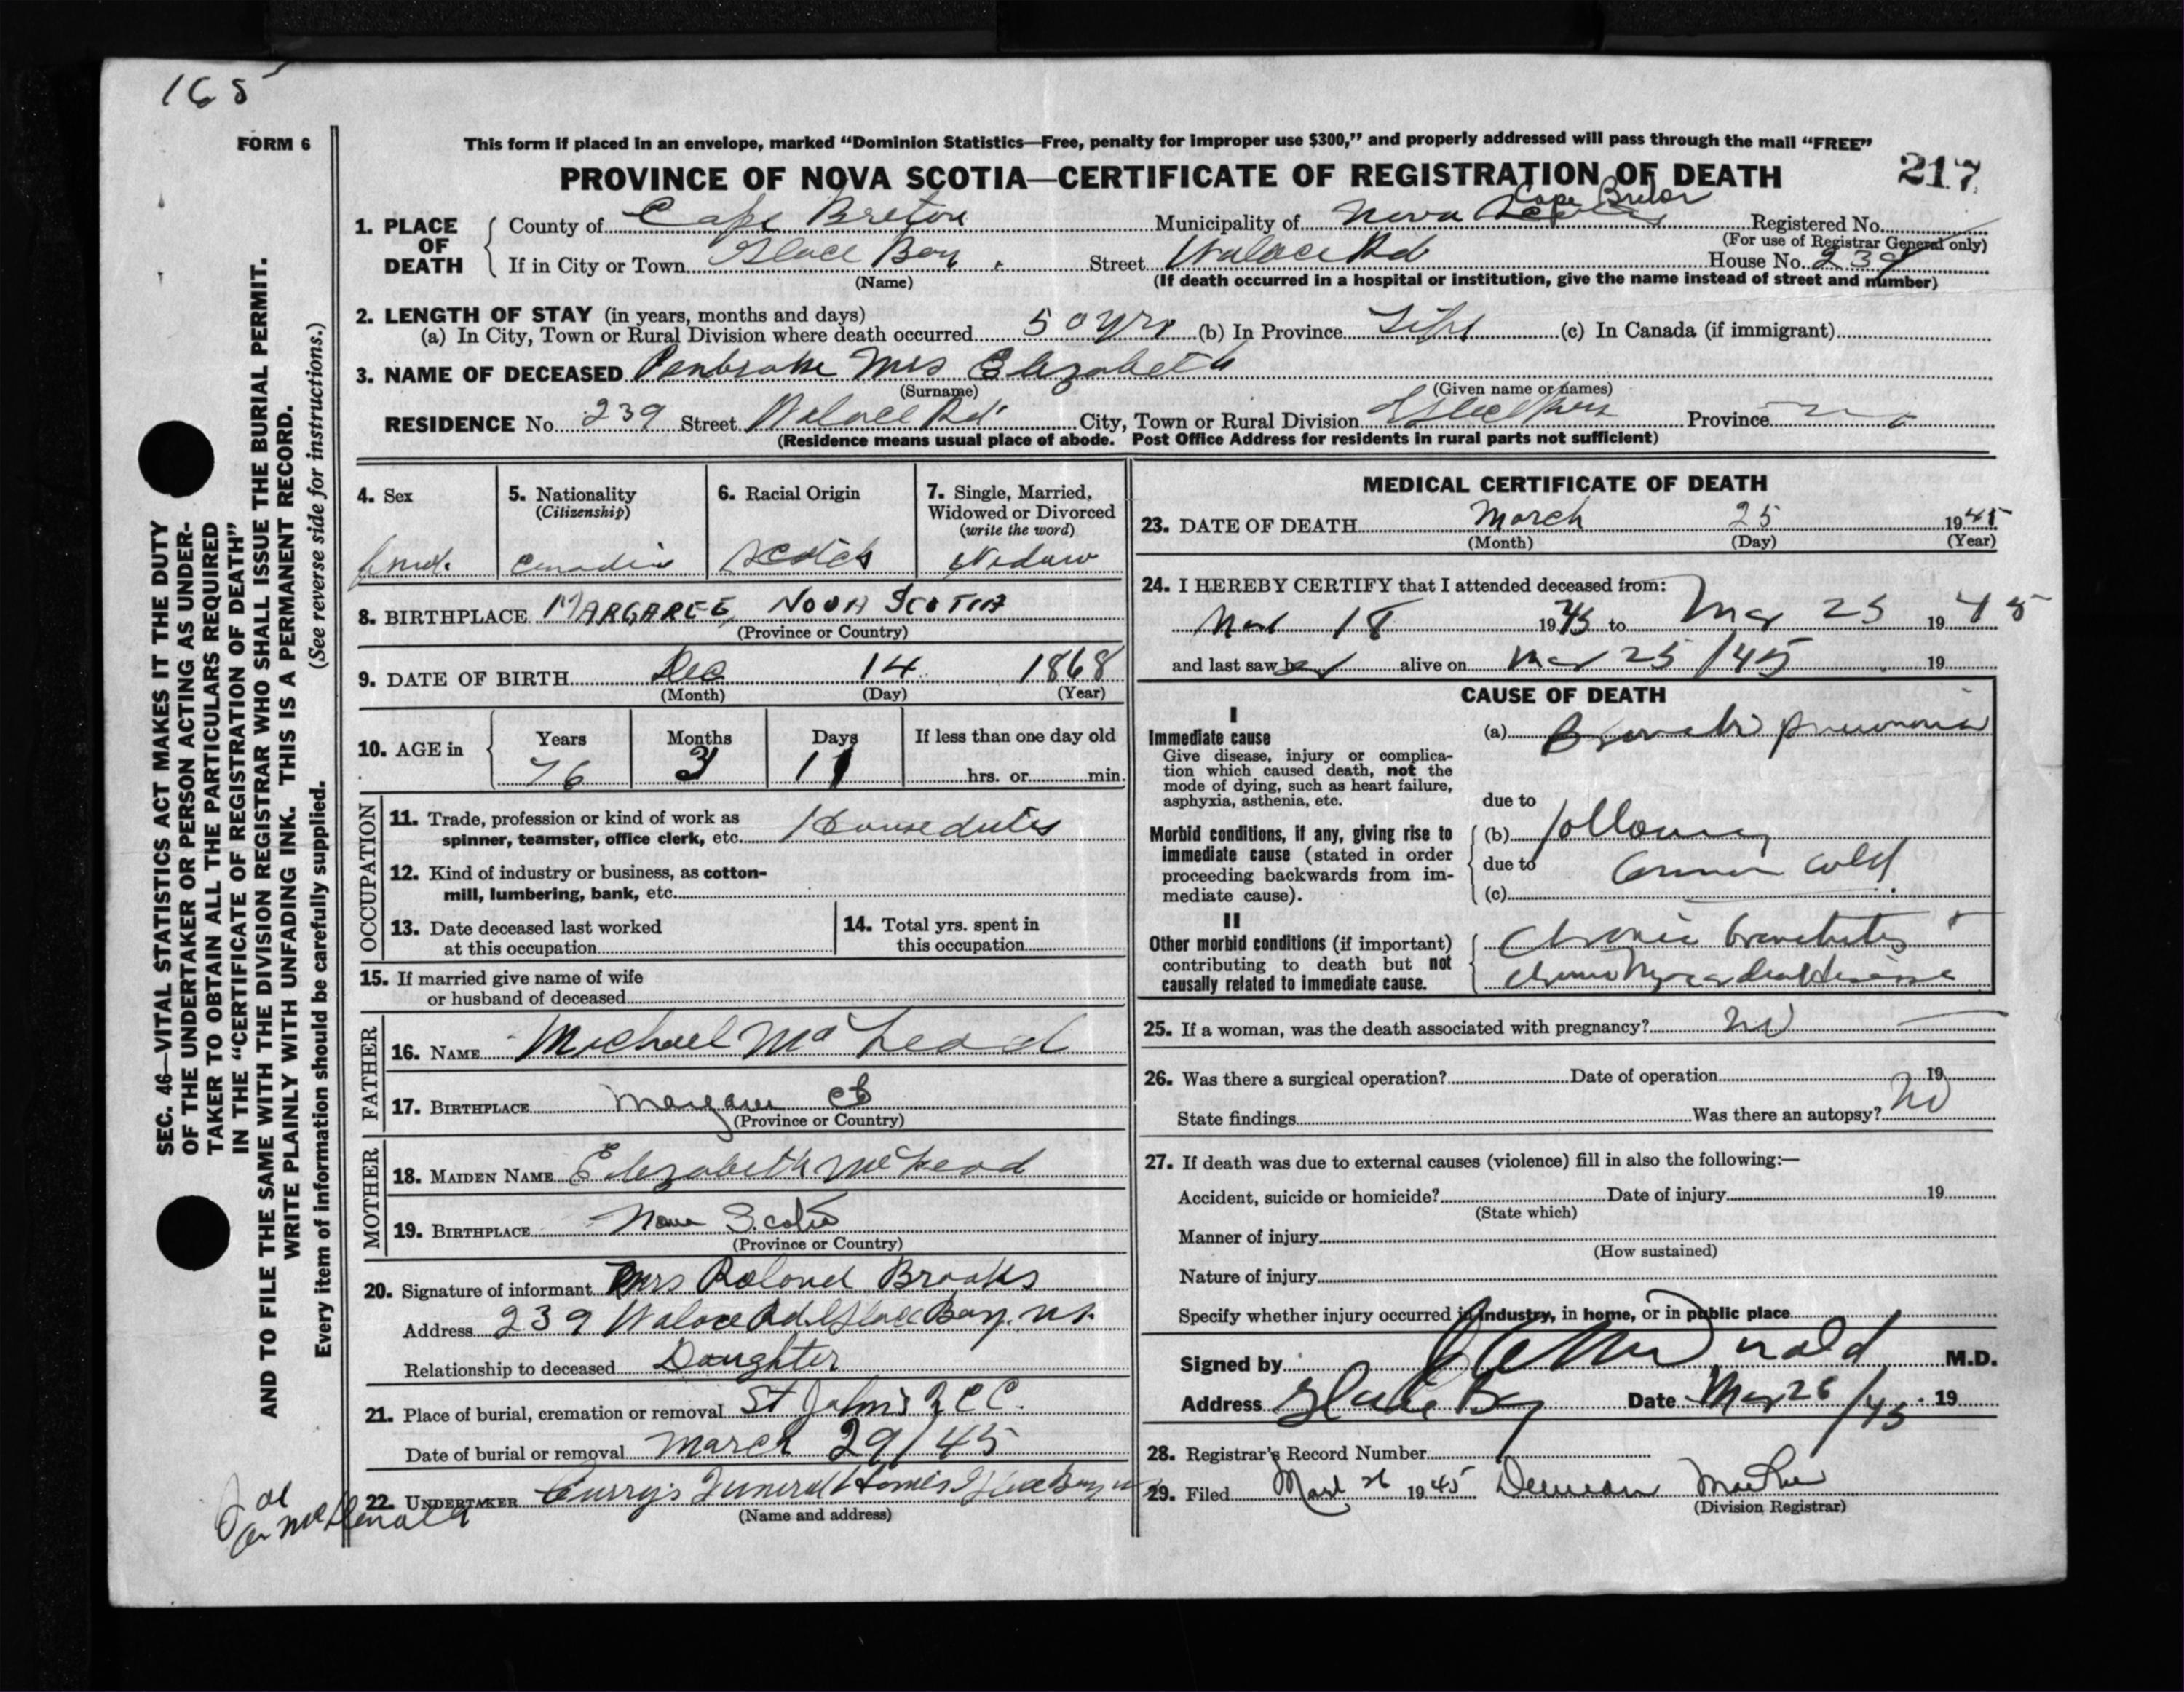 165
FORM 6
This form if placed in an envelope, marked "Dominion Statistics—Free, penalty for improper use $300," and properly addressed will pass through the mail "FREE"
PROVINCE OF NOVA SCOTIA—CERTIFICATE OF REGISTRATION OF DEATH
217
SEC. 46—VITAL STATISTICS ACT MAKES IT THE DUTY
OF THE UNDERTAKER OR PERSON ACTING AS UNDER-
TAKER TO OBTAIN ALL THE PARTICULARS REQUIRED
IN THE "CERTIFICATE OF REGISTRATION OF DEATH"
AND TO FILE THE SAME WITH THE DIVISION REGISTRAR WHO SHALL ISSUE THE BURIAL PERMIT.
WRITE PLAINLY WITH UNFADING INK. THIS IS A PERMANENT RECORD.
Every item of information should be carefully supplied. (See reverse side for instructions.)
1. PLACE OF DEATH
County of Cape Breton Municipality of Nova Scotia Cape Breton Registered No.
(For use of Registrar General only)
If in City or Town Glace Bay. Street Walace Rd House No. 239
(Name) (If death occurred in a hospital or institution, give the name instead of street and number)
2. LENGTH OF STAY (in years, months and days)
(a) In City, Town or Rural Division where death occurred 50 yrs (b) In Province Life (c) In Canada (if immigrant)
3. NAME OF DECEASED Penbroke Mrs Elizabeth
(Surname) (Given name or names)
RESIDENCE No. 239 Street Walace Rd City, Town or Rural Division Glace Bay Province
(Residence means usual place of abode. Post Office Address for residents in rural parts not sufficient)
4. Sex 5. Nationality 6. Racial Origin 7. Single, Married,
(Citizenship) Widowed or Divorced
(write the word)
Canadian Scotch Widow
8. BIRTHPLACE MARGAREE, NOVA SCOTIA
(Province or Country)
9. DATE OF BIRTH Dec 14 1868
(Month) (Day) (Year)
10. AGE in Years Months Days If less than one day old
76 3 11 hrs. or min.
OCCUPATION
11. Trade, profession or kind of work as
spinner, teamster, office clerk, etc. House duties
12. Kind of industry or business, as cotton-
mill, lumbering, bank, etc.
13. Date deceased last worked
at this occupation
14. Total yrs. spent in
this occupation
15. If married give name of wife
or husband of deceased
FATHER
16. NAME Michael McLeod
17. BIRTHPLACE Margaree CB
(Province or Country)
MOTHER
18. MAIDEN NAME Elizabeth McLeod
19. BIRTHPLACE Nova Scotia
(Province or Country)
20. Signature of informant Mrs Roland Brooks
Address 239 Walace Rd Glace Bay. N.S.
Relationship to deceased Daughter
21. Place of burial, cremation or removal St John's
Date of burial or removal March 29/45
22. UNDERTAKER Curry's Funeral Home Glace Bay
(Name and address)
MEDICAL CERTIFICATE OF DEATH
23. DATE OF DEATH March 25 1945
(Month) (Day) (Year)
24. I HEREBY CERTIFY that I attended deceased from:
Mar 18 1945 to Mar 25 1945
and last saw her alive on Mar 25/45 19
CAUSE OF DEATH
I
Immediate cause
Give disease, injury or complica-
tion which caused death, not the
mode of dying, such as heart failure,
asphyxia, asthenia, etc.
(a) Broncho pneumonia
due to
Morbid conditions, if any, giving rise to
immediate cause (stated in order
proceeding backwards from im-
mediate cause).
(b) following
due to
common cold
(c)
II
Other morbid conditions (if important)
contributing to death but not
causally related to immediate cause.
Chronic bronchitis +
chronic myocardial disease
25. If a woman, was the death associated with pregnancy? no
26. Was there a surgical operation? Date of operation 19
State findings Was there an autopsy? no
27. If death was due to external causes (violence) fill in also the following:—
Accident, suicide or homicide? Date of injury 19
(State which)
Manner of injury
(How sustained)
Nature of injury
Specify whether injury occurred in industry, in home, or in public place
Signed by McDonald M.D.
Address Glace Bay Date Mar 26/45. 19
28. Registrar's Record Number
29. Filed Mar 26 1945
(Division Registrar)